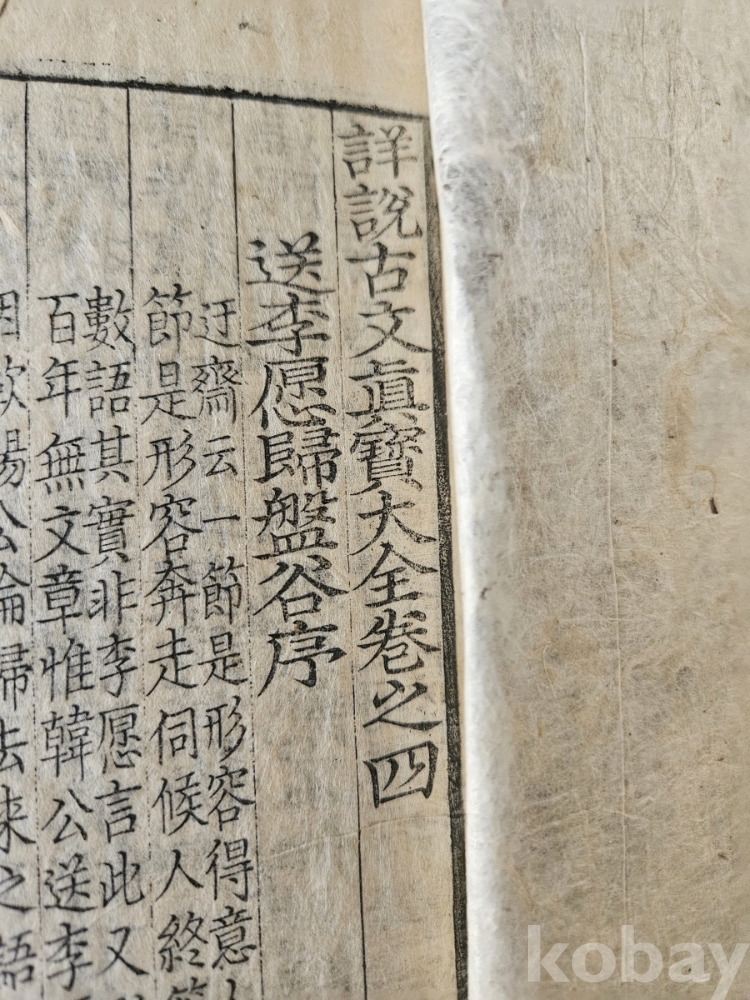 詳說古文眞寶大全卷之四
送李愿歸盤谷序
迂齋云一節是形容得意人
節是形容奔走伺候人終
數語其實非李愿言此又
百年無文章惟韓公送李
因歐陽公論歸去來之語
kobay